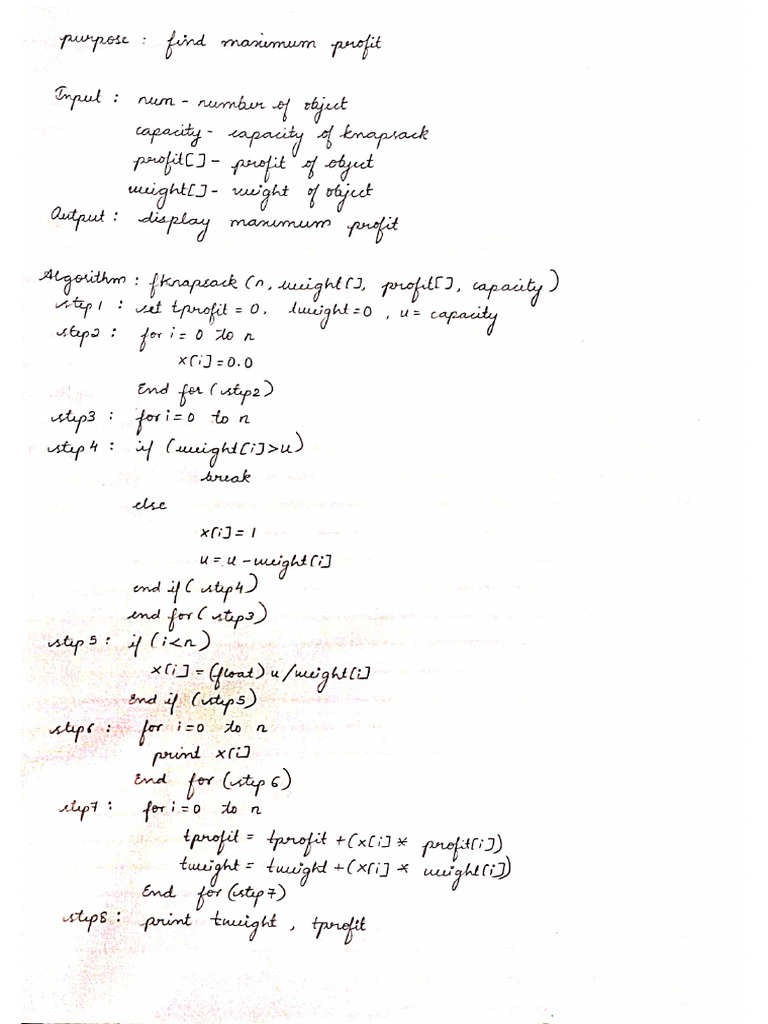 purpose : find maximum profit
Input : num - number of object
capacity - capacity of knapsack
profit[] - profit of object
weight[] - weight of object
Output : display maximum profit
Algorithm : fknapsack (n, weight[], profit[], capacity)
step1 : set tprofit = 0. tweight = 0 , u = capacity
step2 : for i = 0 to n
x[i] = 0.0
End for (step2)
step3 : for i = 0 to n
step4 : if (weight[i] > u)
break
else
x[i] = 1
u = u - weight[i]
end if ( step4)
end for ( step3)
step5 : if (i < n)
x[i] = (float) u / weight[i]
End if (step5)
step6 : for i = 0 to n
print x[i]
End for (step 6)
step7 : for i = 0 to n
tprofit = tprofit + (x[i] * profit[i])
tweight = tweight + (x[i] * weight[i])
End for (step7)
step8 : print tweight , tprofit